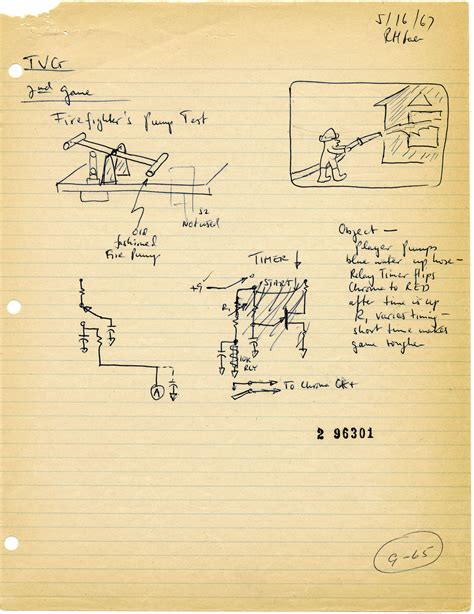 5/16/67
RHBaer
TVG
2nd Game
Firefighter's Pump Test
S2
Not used
Old
fashioned
Fire Pump
Object —
player pumps
blue water up hose —
Relay Timer flips
Chroma to RED
after time is up
R1 varies timing —
short time makes
game tougher
TIMER
+9
START
R1
10K
RLY
To Chroma CKT
A
2 96301
G-65